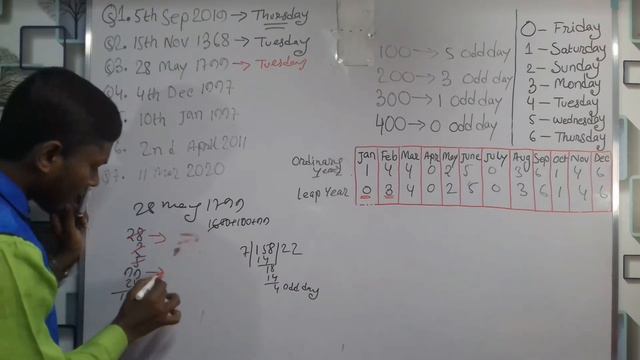 Q1. 5th Sep 2019 → Thursday
Q2. 15th Nov 1368 → Tuesday
Q3. 28 May 1799 → Tuesday
Q4. 4th Dec 1997
10th Jan 1997
6. 2nd April 2011
Q7. 11 Mar 2020
100 → 5 odd day
200 → 3 odd day
300 → 1 odd day
400 → 0 odd day
0 - Friday
1 - Saturday
2 - Sunday
3 - Monday
4 - Tuesday
5 - wednesday
6 - Thursday
Jan Feb Mar Apr May June July Aug Sep Oct Nov Dec
Ordinary year 1 4 4 0 2 5 0 3 6 1 4 6
Leap Year 0 3 4 0 2 5 0 3 6 1 4 6
28 may 1799
1600+100+99
28 →
2
99 →
7|158|22
14
18
14
4 odd day